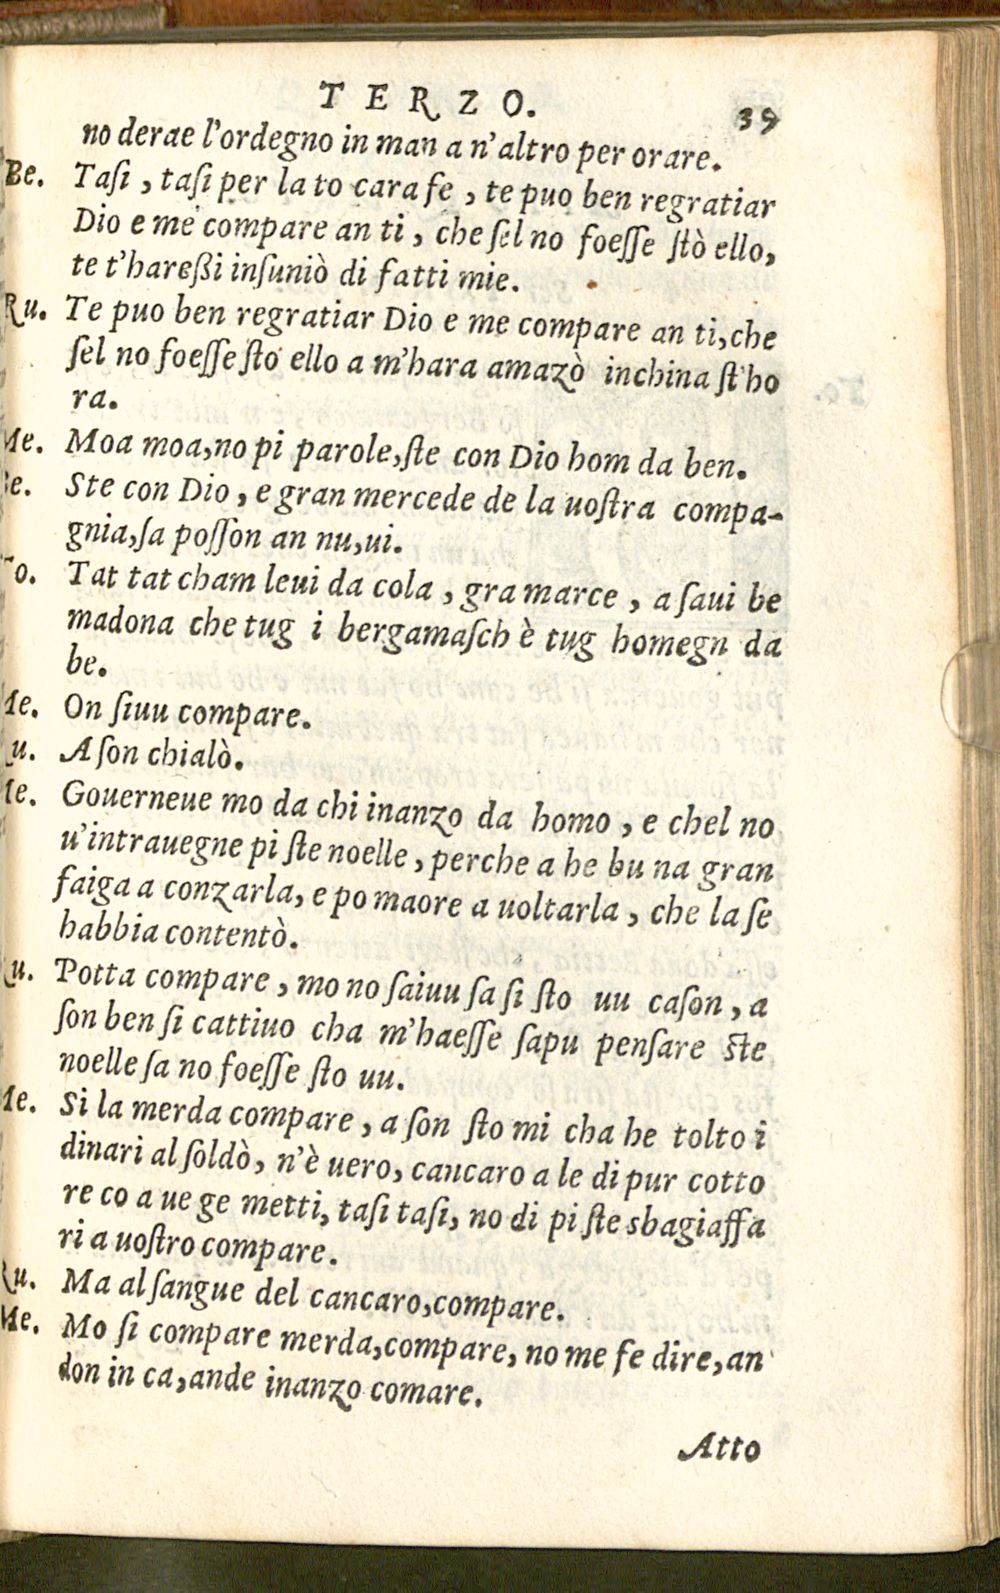 TERZO. 39
no derae l'ordegno in man a n'altro per orare.
Be. Tasi, tasi per la to cara fe, te puo ben regratiar
Dio e me compare an ti, che sel no foesse stò ello,
te t'haressi insuniò di fatti mie.
Ru. Te puo ben regratiar Dio e me compare an ti, che
sel no foesse sto ello a m'hara amazò inchina st'ho
ra.
Me. Moa moa, no pi parole, ste con Dio hom da ben.
Be. Ste con Dio, e gran mercede de la uostra compa-
gnia, sa posson an nu, ui.
To. Tat tat cham leui da cola, gra marce, a saui be
madona che tug i bergamasch è tug homegn da
be.
Me. On siuu compare.
Ru. A son chialò.
Me. Gouerneue mo da chi inanzo da homo, e chel no
u'intrauegne pi ste noelle, perche a he bu na gran
faiga a conzarla, e po maore a uoltarla, che la se
habbia contentò.
Ru. Potta compare, mo no saiuu sa si sto uu cason, a
son ben si cattiuo cha m'haesse sapu pensare ste
noelle sa no foesse sto uu.
Me. Si la merda compare, a son sto mi cha he tolto i
dinari al soldò, n'è uero, cancaro a le di pur cotto
re co a ue ge metti, tasi tasi, no di pi ste sbagiaffa
ri a uostro compare.
Ru. Ma al sangue del cancaro, compare.
Me. Mo si compare merda, compare, no me fe dire, an
don in ca, ande inanzo comare.
Atto